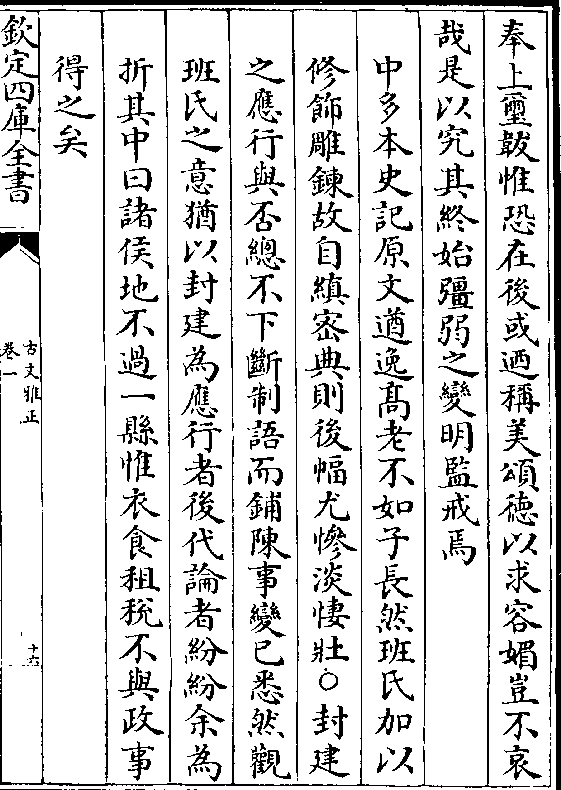 奉上璽韍惟恐在後或迺稱美頌徳以求容媚豈不哀
哉是以究其終始彊弱之變明監戒焉
中多本史記原文遒逸髙老不如子長然班氏加以
修飾雕鍊故自縝宻典則後幅尤慘淡悽壯○封建
之應行與否總不下斷制語而鋪陳事變已悉然觀
班氏之意猶以封建為應行者後代論者紛紛余為
折其中曰諸侯地不過一縣惟衣食租稅不與政事
得之矣
欽定四庫全書
古文雅正
卷一
十六